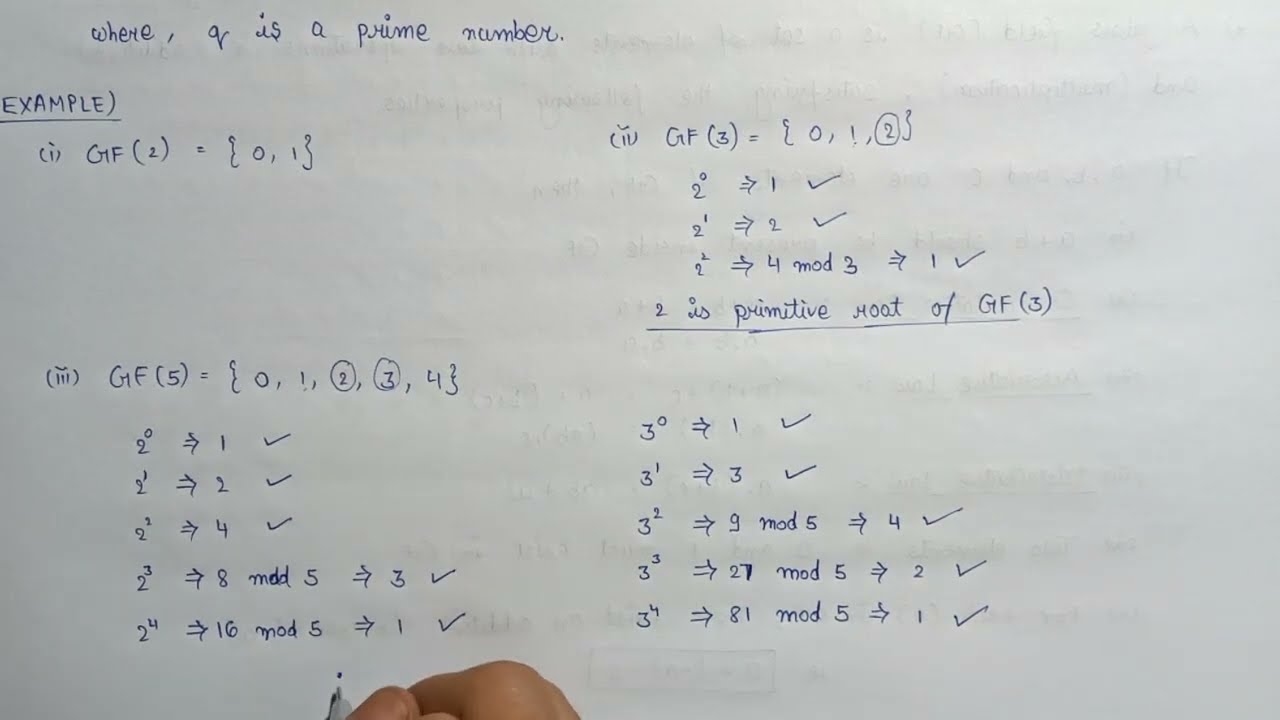 where, q is a prime number.
EXAMPLE)
(i) GF(2) = { 0, 1 }
(ii) GF(3) = { 0, 1, 2 }
2⁰ ⇒ 1 ✓
2¹ ⇒ 2 ✓
2² ⇒ 4 mod 3 ⇒ 1 ✓
2 is primitive root of GF(3)
(iii) GF(5) = { 0, 1, 2, 3, 4 }
2⁰ ⇒ 1 ✓
2¹ ⇒ 2 ✓
2² ⇒ 4 ✓
2³ ⇒ 8 mod 5 ⇒ 3 ✓
2⁴ ⇒ 16 mod 5 ⇒ 1 ✓
3⁰ ⇒ 1 ✓
3¹ ⇒ 3 ✓
3² ⇒ 9 mod 5 ⇒ 4 ✓
3³ ⇒ 27 mod 5 ⇒ 2 ✓
3⁴ ⇒ 81 mod 5 ⇒ 1 ✓